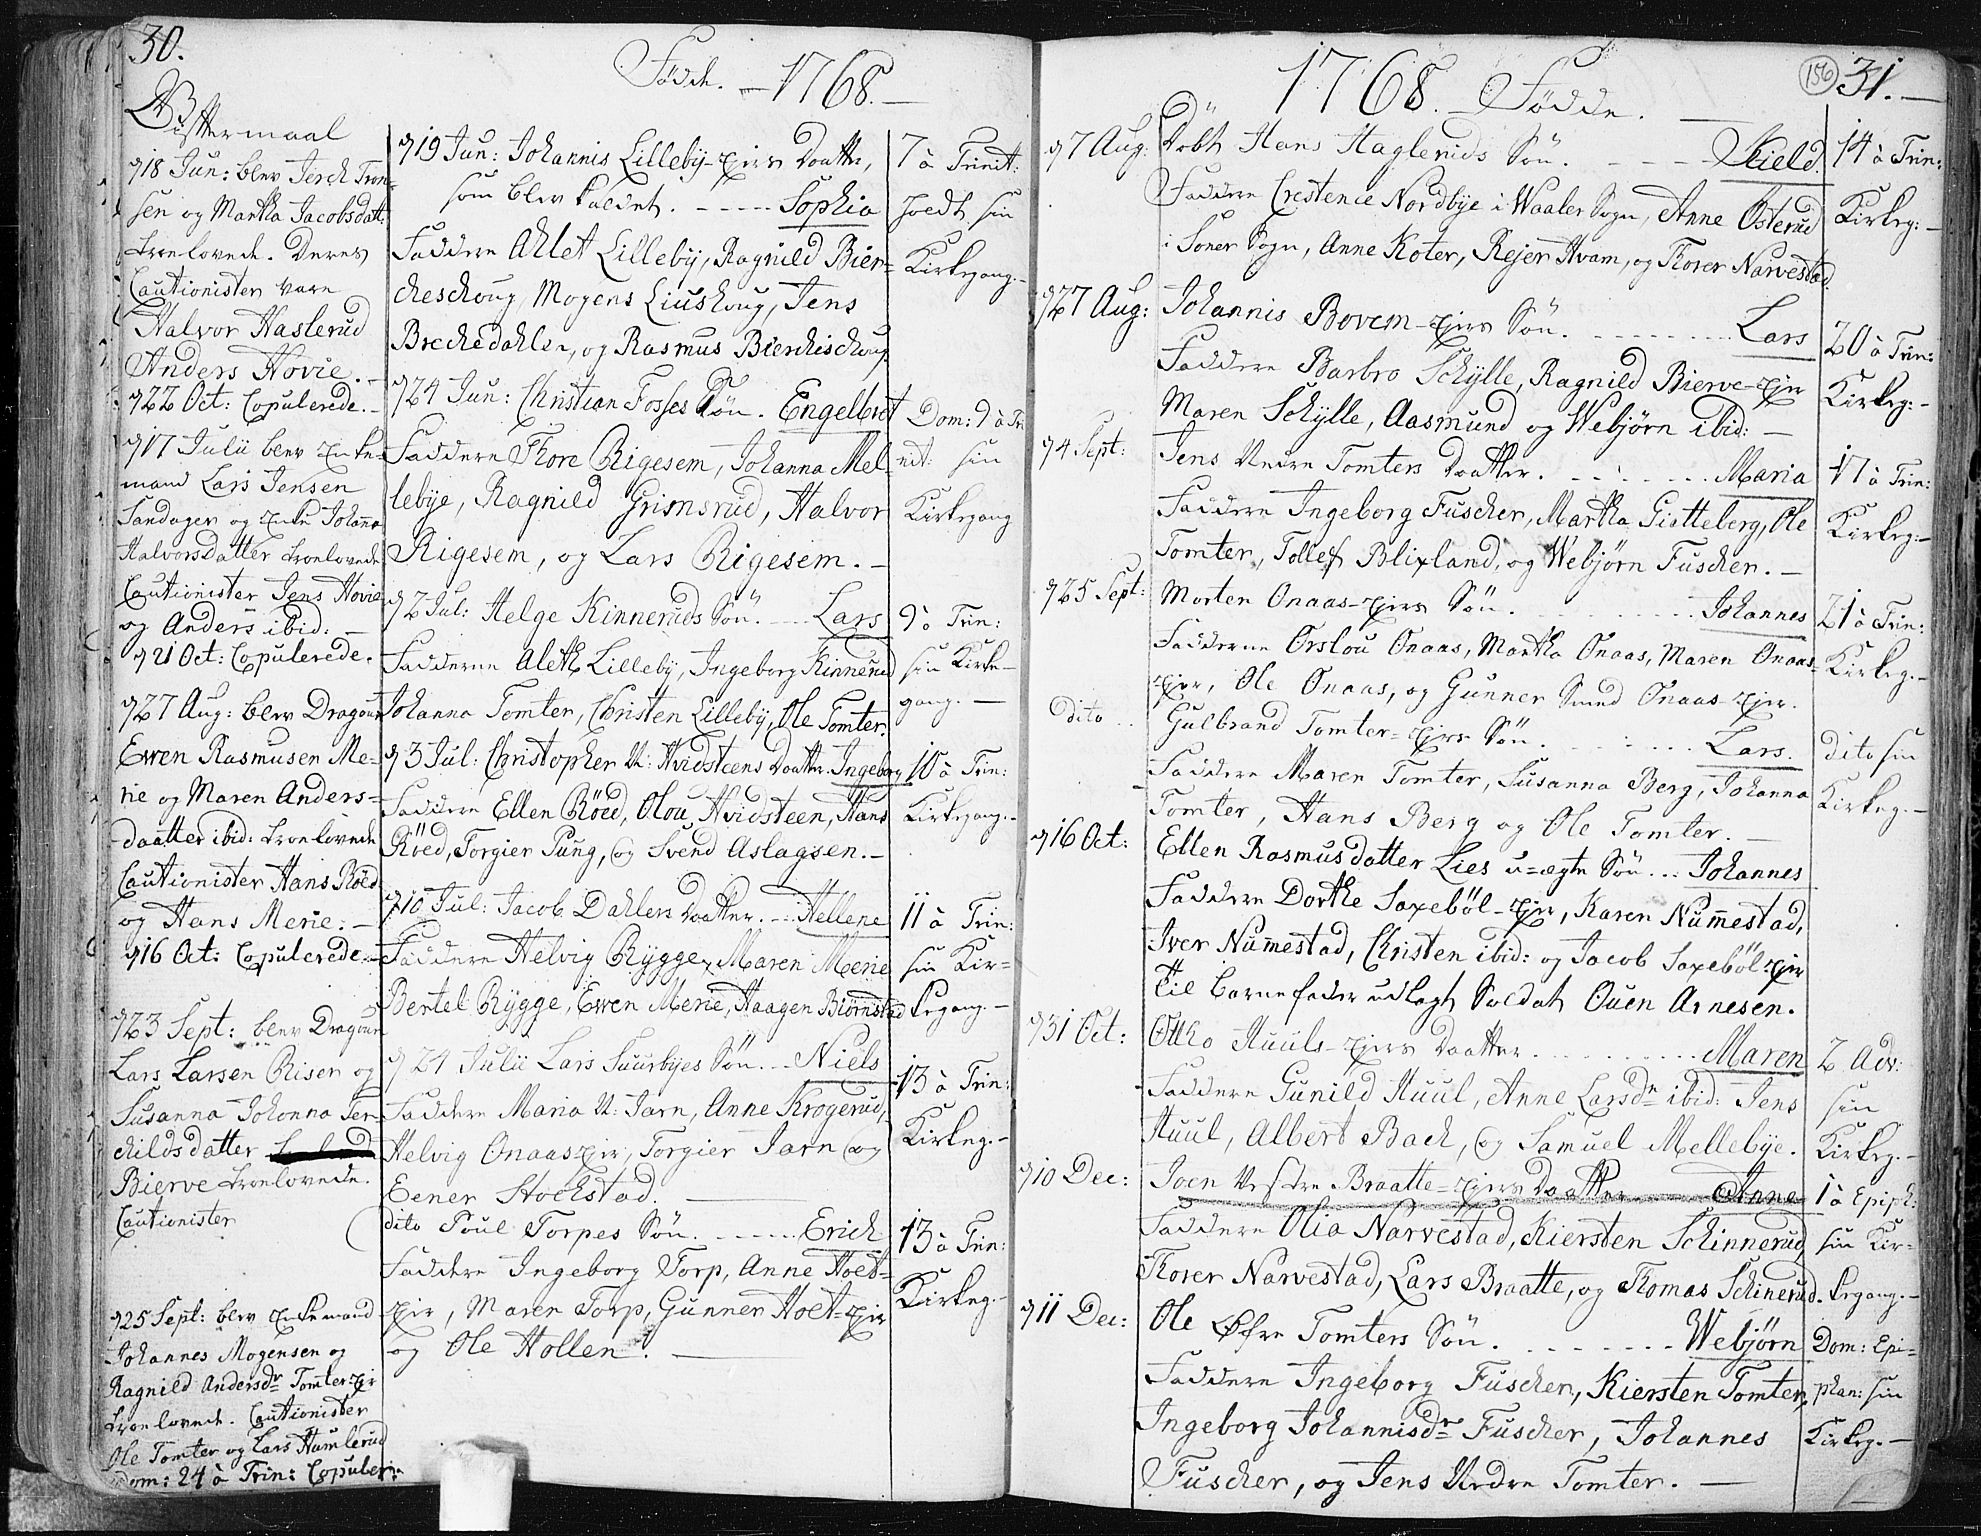 30.
Födde. — 1768. —
Gifftermaal
d 18 Jun: blev Jerch Tron=
sen og Martha Jacobsdatt:
troelovede. Deres
Cautionister vare
Halvor Haslerud
Anders Hovie. —
d 22 Oct: Copulerede. —
d 17 Julii blev Enke=
mand Lars Jensen
Sandager og Enke Johana
Halvorsdatter troelovede
Cautionister Jens Hovie
og Anders ibid: —
d 21 Oct: Copulerede.
d 27 Aug: blev Dragoun
Ewen Rasmusen Me=
rie og Maren Anders=
daatter ibid: troelovede
Cautionister Hans Röed
og Hans Merie: —
d 16 Oct: Copulerede. —
d 23 Sept: blev Dragoun
Lars Larsen Riser og
Susanna Johanna Ter=
childsdatter
Bierve troelovede.
Cautionister
d 25 Sept: blev Enkemand
Johannes Mogensen og
Ragnild Andersdr Tomter-Eir
troelovede. Cautionister
Ole Tomter og Lars Humlerud
Dom: 24 à Trin: Copuler:
d 19 Jun: Johannis Lilleby-Eiers Daatter,
som blev kaldet. - - - - Sophia
Faddere Ahlet Lilleby, Ragnild Bier=
cheschoug, Mogens Liuskoug, Jens
Brechedahlen, og Rasmus Bierchischoug
d 24 Jun: Christian Fosses Sön. Engelbret
Faddere Thore Rigesem, Johanna Mel=
lebye, Ragnild Grimsrud, Halvor
Rigesem, og Lars Rigesem. —
d 2 Jul: Helge Kinneruds Sön. - - - Lars
Fadderne Aleth Lilleby, Ingeborg Kinnerud
Johanna Tomter, Christen Lilleby, Ole Tomter.
d 3 Jul: Christopher N: Hvidsteens Daatter. Ingeborg
Faddere Ellen Röed, Olou Hvidsteen, Hans
Röed, Torgier Pung, og Svend Aslagsen. —
d 10 Jul: Jacob Dahlers Daatter. - - - Hellene
Faddere Helvig Rygge, Maren Merie
Bertel Rygge, Ewen Merie, Haagen Biörnstad
d 24 Julii Lars Suurbyes Sön. - - - Niels
Faddere Maria N: Jarn, Anne Krogerud,
Helvig Onaas-Eir, Torgier Jarn og
Eener Stochstad. —
dito Poul Torpes Sön. - - - - - Erich
Faddere Ingeborg Torp, Anne Hoet=
Eir, Maren Torp, Gunner Hoet=Eir
og Ole Hollen. —
7 à Trinit:
hoedt sin
Kirkegang. —
Dom: 9 à Tri
nit: sin
Kirkegang
9 à Trin:
sin Kirke=
gang. —
10 à Trin:
Kirkegang. —
11 à Trin:
sin Kir=
kegang. —
13 à Trin:
Kirkeg. —
13 à Trin:
Kirkeg. —
1768. — Födde. —
156
31. —
d 7 Aug: Döbt Hans Haglerids Sön. - - - - Kield. 14 à Trin:
Faddere Crestence Nordbye i Waaler Sogn, Anne Osterud Kirkeg: —
i Soner Sogn, Anne Koter, Rejer Hvam, og Thorer Narvestad.
d 27 Aug: Johannis Bovem-Eiers Sön. - - - - - - - Lars 20 à Trin:
Faddere Barbro Schylle, Ragnild Bierve-Eir Kirkeg: —
Maren Schylle, Aasmund og Webjørn ibid: —
d 4 Sept: Jens Nedre Tomters Daatter. - - - - - - Maria 17 à Trin:
Faddere Ingeborg Fuscher, Martha Giotteberg, Ole Kirkeg: —
Tomter, Tollef Blixland, og Webjørn Fuscher. —
d 25 Sept: Morten Onaas-Eiers Sön. - - - - - - Johannes 21 à Trin:
Fadderne Orslou Onaas, Martha Onaas, Maren Onaas- Kirkeg. —
Eier, Ole Onaas, og Gunner Smed Onaas-Eier.
dito Gulbrand Tomter=Eiers Sön. - - - - - - Lars. dito sin
Faddere Maren Tomter, Susanna Berg, Johanna Kirkeg. —
Tomter, Hans Berg og Ole Tomter. —
d 16 Oct: Ellen Rasmusdatter Lies u=ægte Sön. . . . Johannes
Faddere Dorthe Saxeböl-Eir, Karen Numestad,
Iver Numestad, Christen ibid: og Jacob Saxeböl-Eir
Til Barnefader udlagt Soldat Ouen Arnesen.
d 31 Oct: Otho Huuls-Eiers Daatter. - - - - - - - Maren 2 Adv:
Faddere Gunild Huul, Anne Larsdr ibid: Jens sin
Huul, Albert Bach, og Samuel Mellebye. Kirkeg. —
d 10 Dec: Joen Vestre Braatte=Eiers Daatter. - - - Anne 1 à Epiph:
Faddere Olia Narvestad, Kiersten Schinnerud sin Kir=
Thorer Narvestad, Lars Braatte, og Thomas Schinerud. kegang. —
d 11 Dec: Ole Øfre Tomters Sön. - - - - - - - Webjørn Dom: Epi=
Faddere Ingeborg Fuscher, Kiersten Tomter, phan: sin
Ingeborg Johannisdr Fuscher, Johannes Kirkeg. —
Fuscher, og Jens Nedre Tomter. —